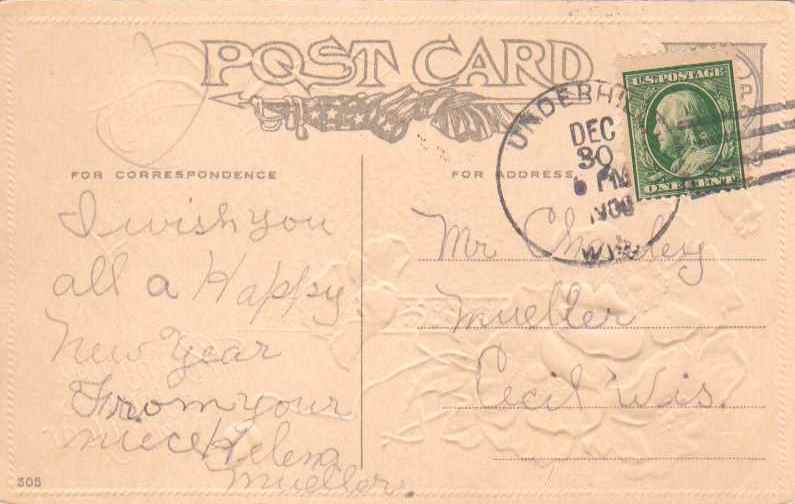 POST CARD
UNDERH
DEC
30
PM
WIS
U.S. POSTAGE
ONE CENT
FOR CORRESPONDENCE
FOR ADDRESS
I wish you
all a Happy
New Year
From your
niece Helena
Mueller
Mr Charley
Mueller
Cecil Wis.
305